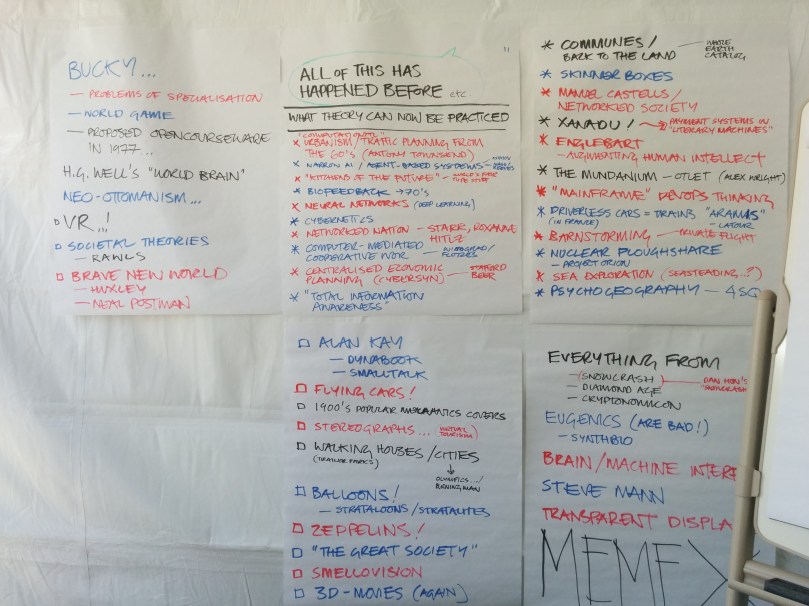 BUCKY...
— PROBLEMS OF SPEZIALISATION
— WORLD GAME
— PROPOSED OPENCOURSEWARE
IN 1977..
H.G. WELL'S "WORLD BRAIN"
NEO-OTTOMANISM...
VR..!
SOCIETAL THEORIES
— RAWLS
BRAVE NEW WORLD
— HUXLEY
— NEAL POSTMAN
11
ALL OF THIS HAS
HAPPENED BEFORE etc
WHAT THEORY CAN NOW BE PRACTICED
"COMPUTATIONAL"
* URBANISM/TRAFFIC PLANNING FROM
THE 60'S (ANTONY TOWNSEND)
* NARROW AI / AGENT-BASED SYSTEMS
* "KITCHENS OF THE FUTURE" — WORLD'S FAIR
TYPE STUFF
* BIOFEEDBACK → 70'S
* NEURAL NETWORKS (DEEP LEARNING)
* CYBERNETICS
* NETWORKED NATION — STARR, ROXANNE
HILTZ
* COMPUTER-MEDIATED
COOPERATIVE WOR — WINOGRAD/
FLORES
* CENTRALISED ECONOMIC
PLANNING (CYBERSYN) — STAFFORD
BEER
* "TOTAL INFORMATION
AWARENESS"
* COMMUNES/
BACK TO THE LAND — WHOLE
EARTH
CATALOG
* SKINNER BOXES
* MANUEL CASTELLS/
NETWORKED SOCIETY
* XANADU! → PAYMENT SYSTEMS IN
"LITERARY MACHINES"
* ENGLEBART
— AUGMENTING HUMAN INTELLECT
* THE MUNDANIUM — OTLET (ALEX WRIGHT)
* "MAINFRAME" DEVOPS THINKING
* DRIVERLESS CARS = TRAINS "ARAMIS"
(IN FRANCE) — LATOUR
* BARNSTORMING — PRIVATE FLIGHT
* NUCLEAR PLOUGHSHARE
— PROJECT ORION
* SEA EXPLORATION (SEASTEADING...?)
* PSYCHOGEOGRAPHY — 4SQ
ALAN KAY
— DYNABOOK
— SMALLTALK
FLYING CARS!
1900'S POPULAR MECHANICS COVERS
STEREOGRAPHS... (VIRTUAL
TOURISM)
WALKING HOUSES/CITIES
(TRAILER PARKS)
OLYMPICS.../
BURNING MAN
BALLOONS!
— STRATALOONS/STRATALITES
ZEPPELINS!
"THE GREAT SOCIETY"
SMELLOVISION
3D-MOVIES (AGAIN)
EVERYTHING FROM
— SNOWCRASH
— DIAMOND AGE
— CRYPTONOMICON
DAN HON'S
"SNOWCRASH
EUGENICS (ARE BAD!)
— SYNTHBIO
BRAIN/MACHINE INTERF
STEVE MANN
TRANSPARENT DISPLA
MEMEX